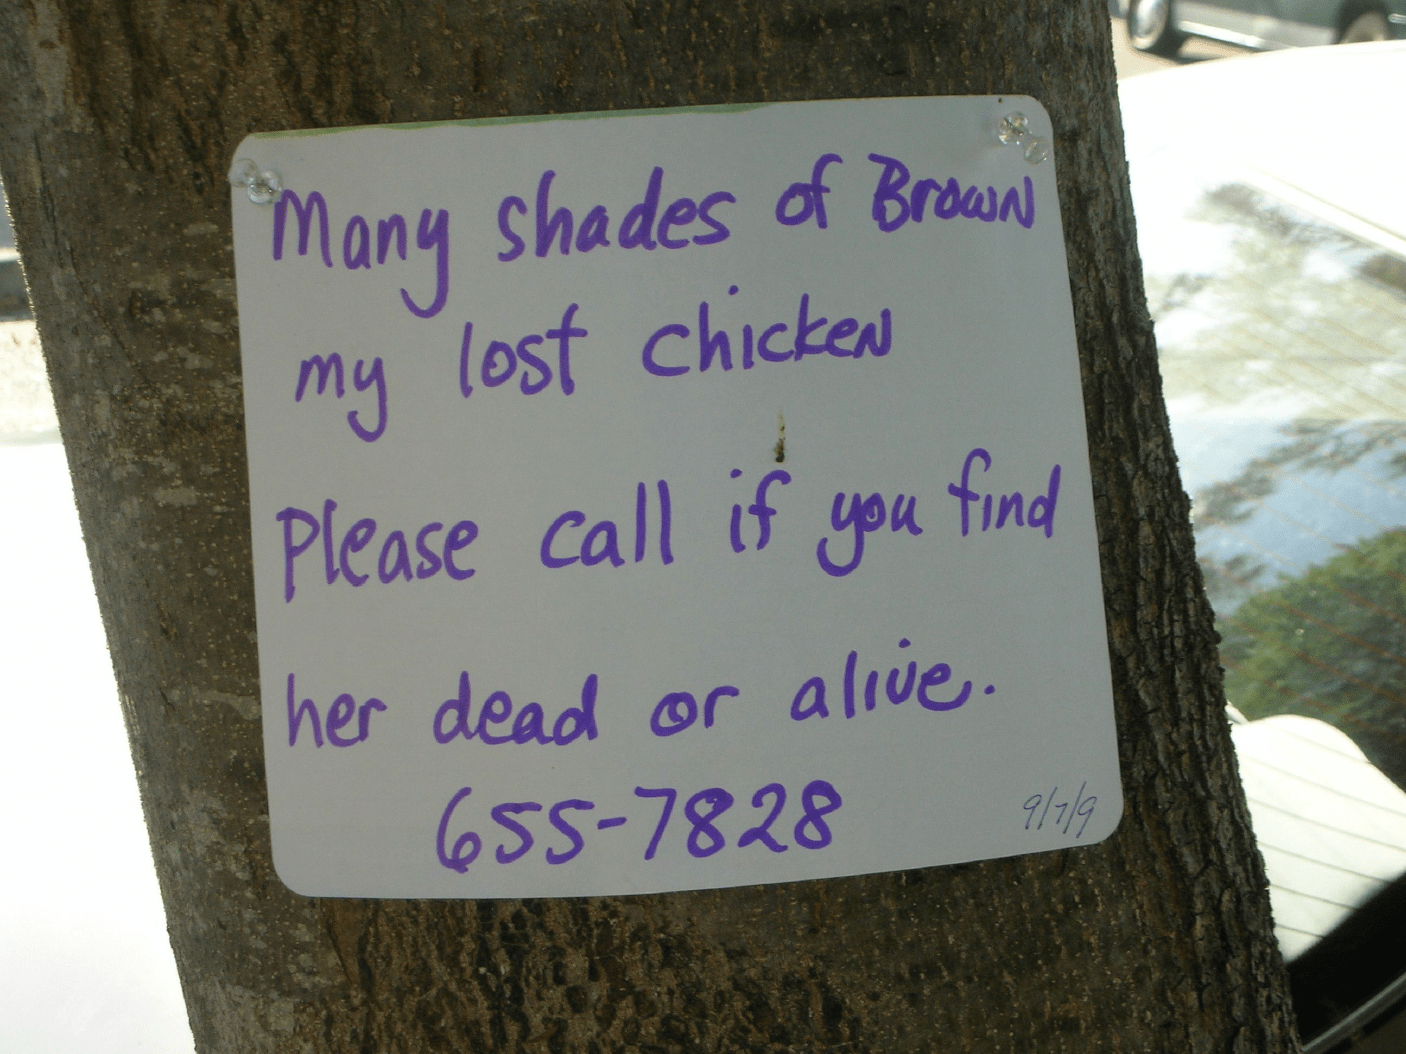 Many shades of Brown
my lost chicken
Please call if you find
her dead or alive.
655-7828
9/7/9